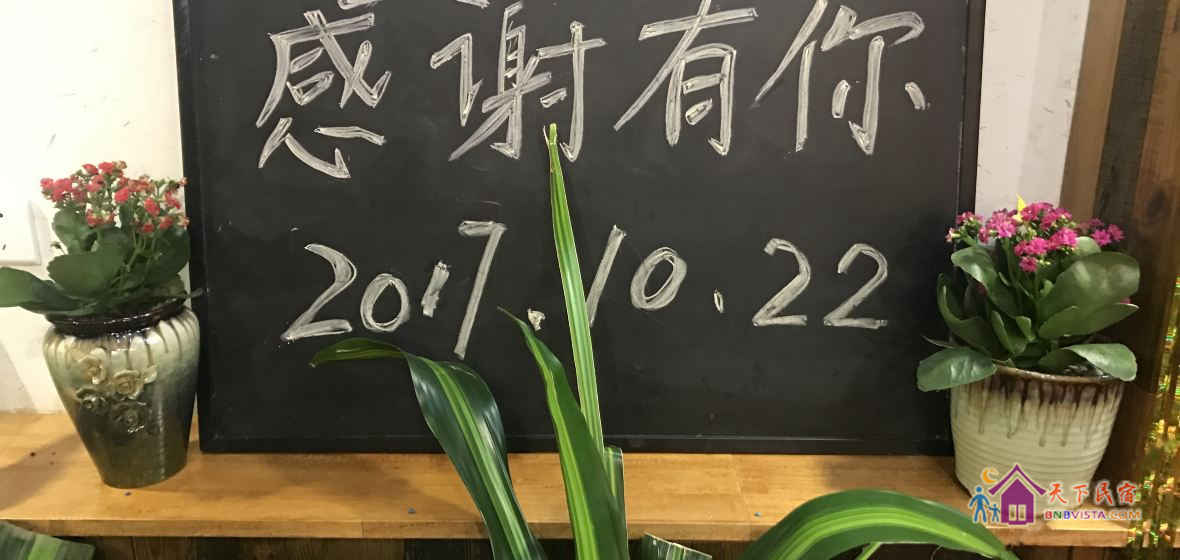 感谢有你
2017.10.22
天下民宿
BNBVISTA.COM